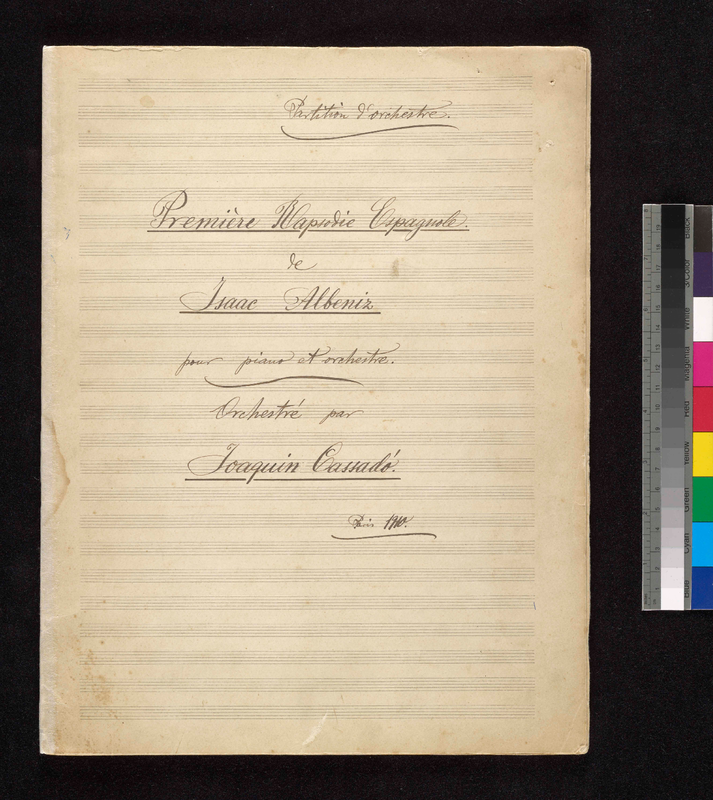 Partition d'orchestre.
Première Rapsodie Espagnole.
de
Isaac Albeniz
pour piano et orchestre.
Orchestré par
Joaquin Cassadó.
Paris 1910.
Black
3/Color
White
Magenta
Red
Yellow
Green
Cyan
Blue